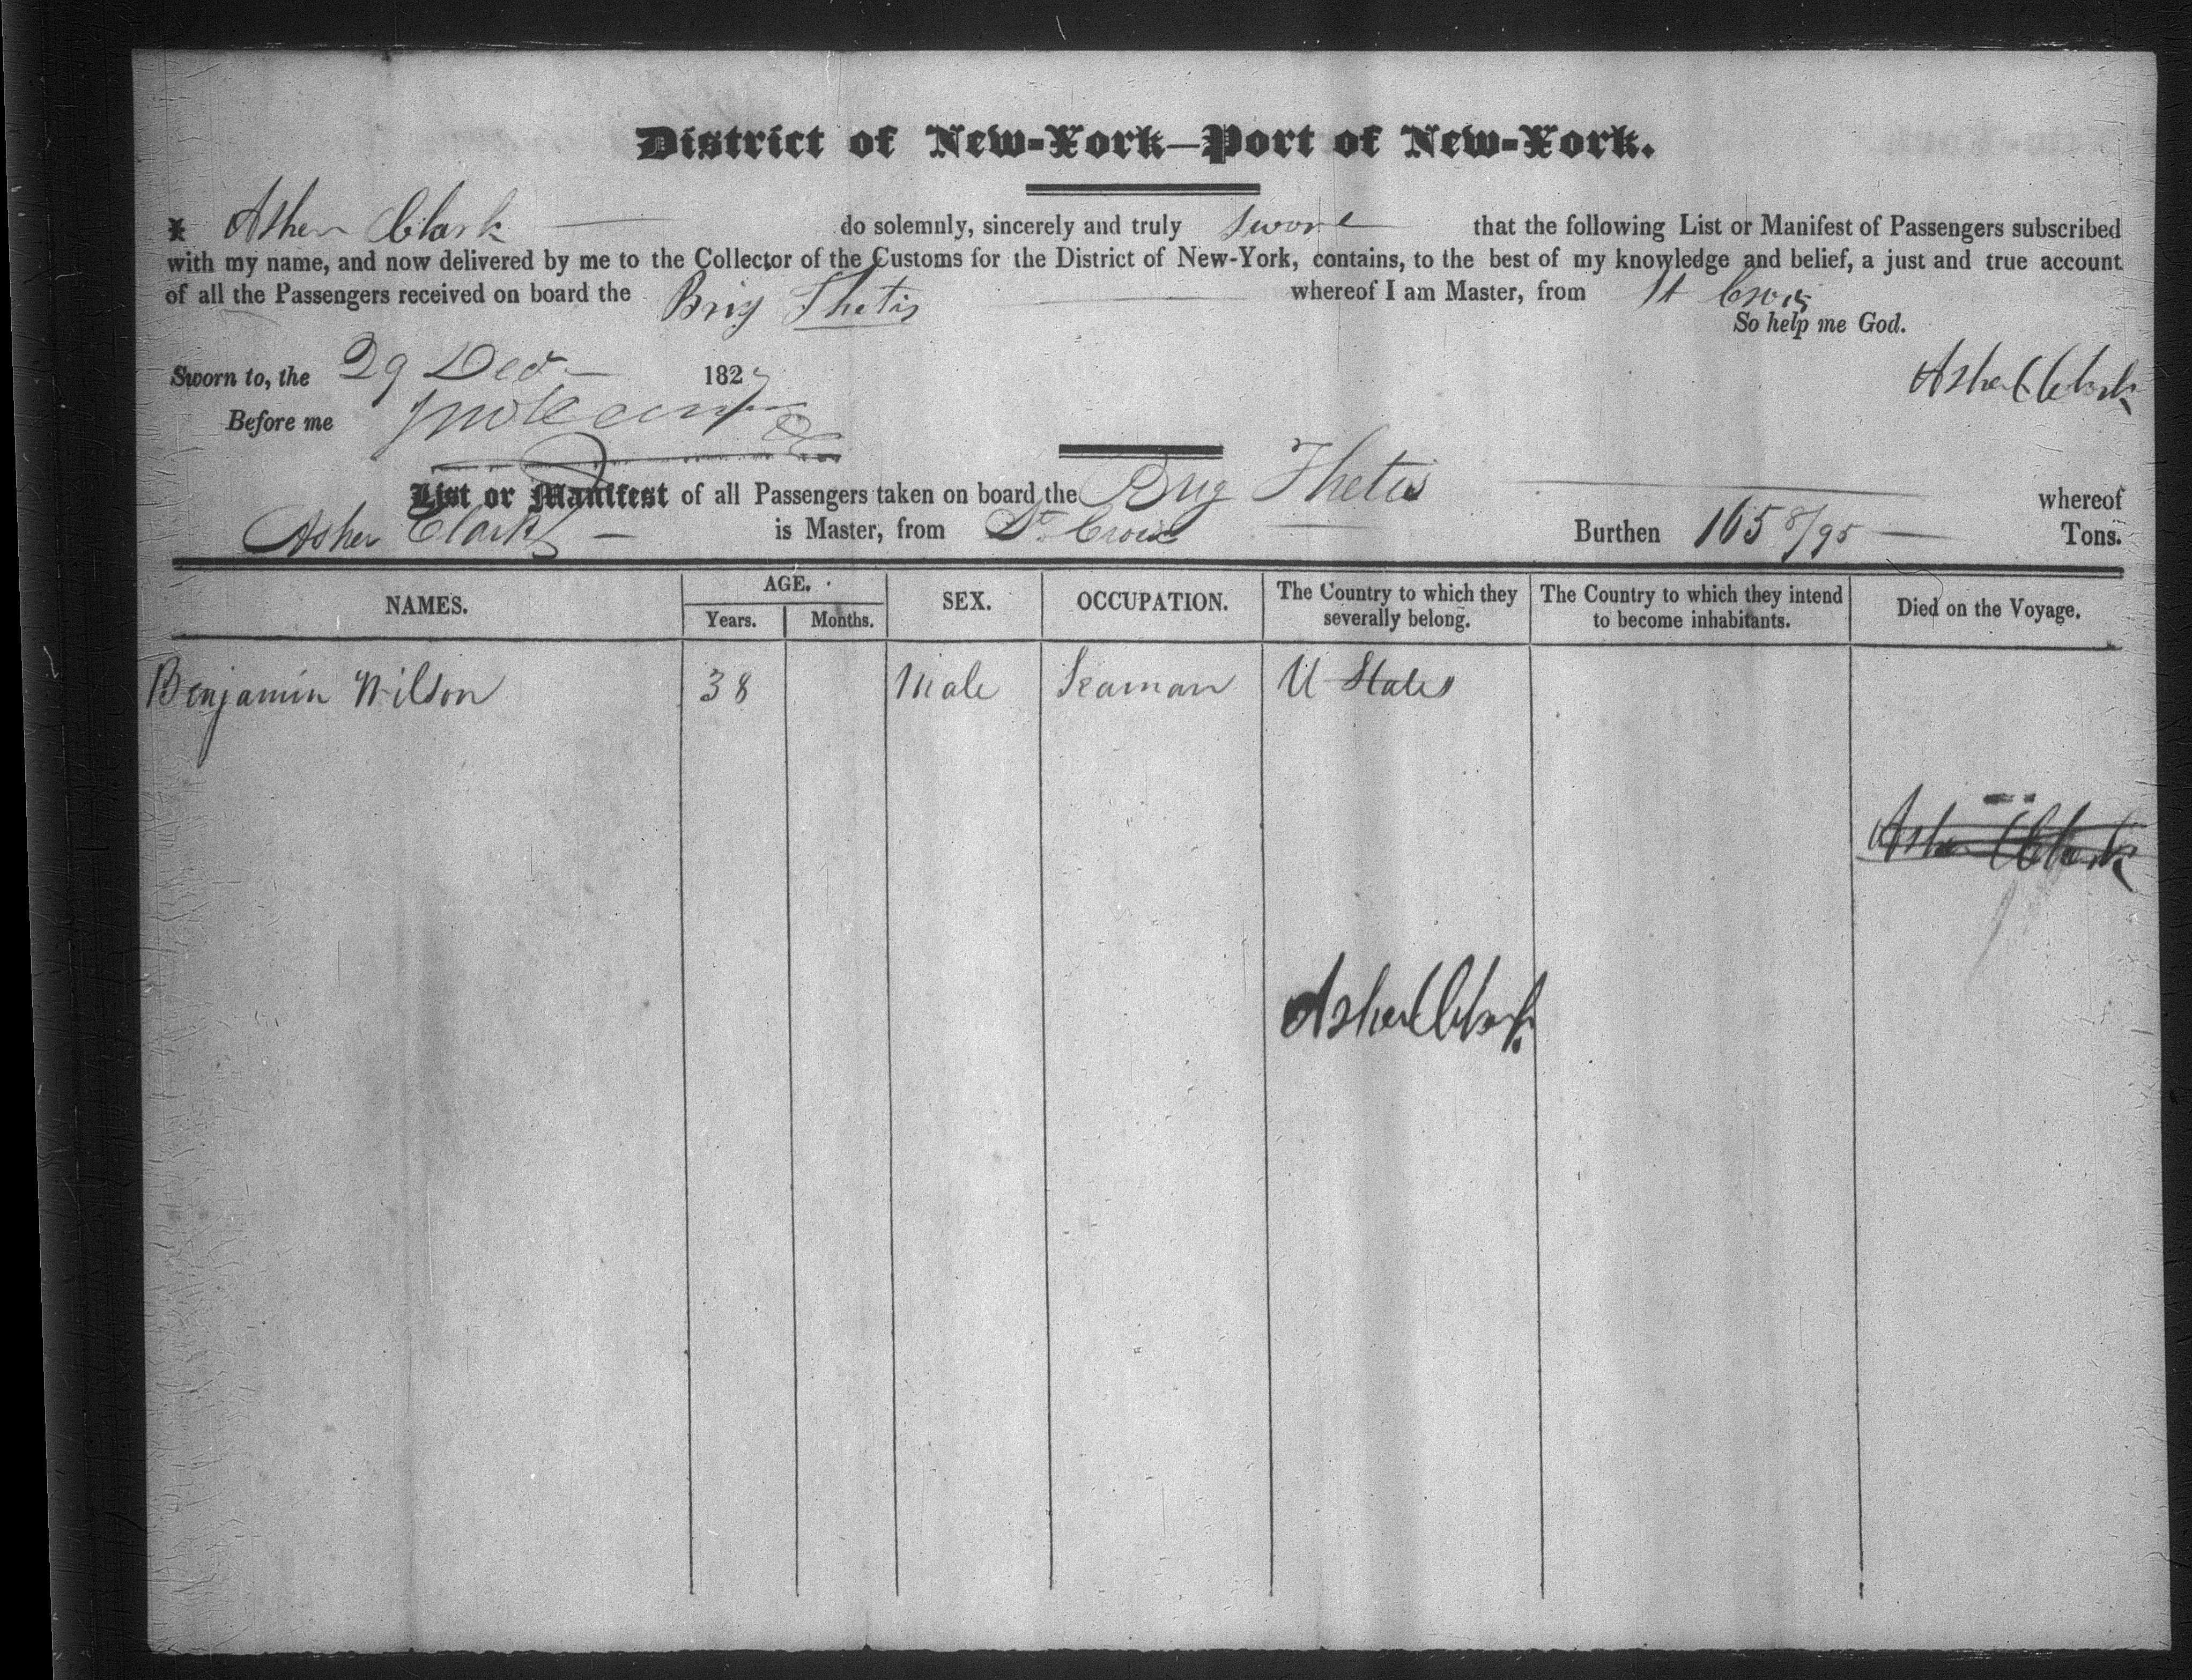 District of New-York—Port of New-York.
I Asher Clark do solemnly, sincerely and truly swore that the following List or Manifest of Passengers subscribed
with my name, and now delivered by me to the Collector of the Customs for the District of New-York, contains, to the best of my knowledge and belief, a just and true account
of all the Passengers received on board the Brig Thetis whereof I am Master, from St Croix
So help me God.
Sworn to, the 29 Dec 1827
Asher Clark
Before me
List or Manifest of all Passengers taken on board the Brig Thetis whereof
Asher Clark is Master, from St Croix Burthen 165 8/95 Tons.
NAMES. AGE. SEX. OCCUPATION. The Country to which they severally belong. The Country to which they intend to become inhabitants. Died on the Voyage.
Years. Months.
Benjamin Wilson 38 Male Seaman U States
Asher Clark
Asher Clark